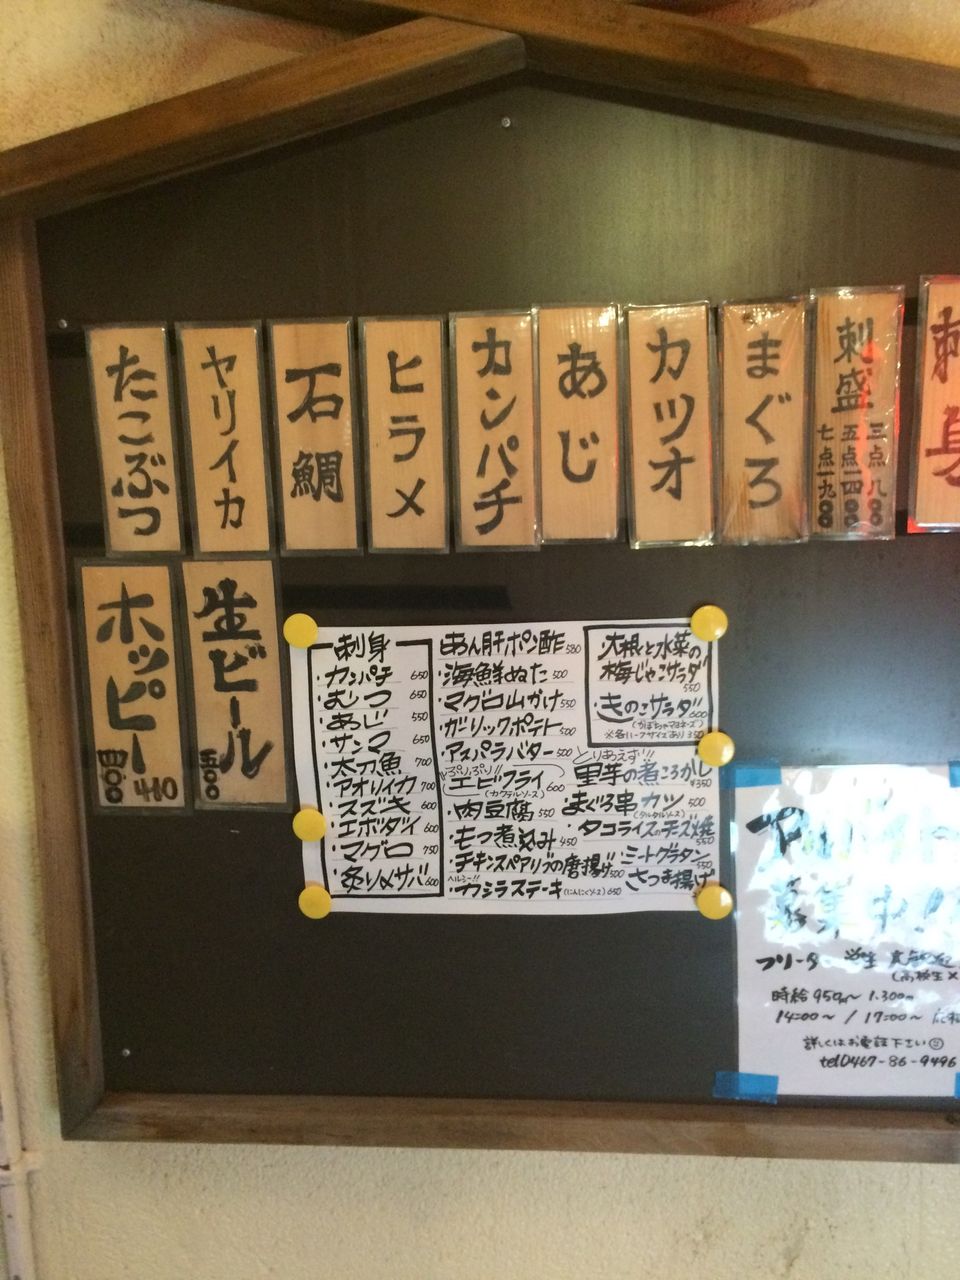 刺身
刺盛
三点 八〇〇
五点 一四〇〇
七点 一九〇〇
まぐろ
カツオ
あじ
カンパチ
ヒラメ
石鯛
ヤリイカ
たこぶつ
生ビール
五〇〇
ホッピー
四〇〇
410
刺身
・カンパチ 650
・むつ 650
・あじ 550
・サンマ 650
・太刀魚 700
・アオリイカ 700
・スズキ 600
・エボダイ 600
・マグロ 750
・炙り〆サバ 600
・あん肝ポン酢 580
・海鮮ぬた 500
・マグロ山かけ 550
・ガーリックポテト 500
・アスパラバター 500
ぷりぷり!!
・エビフライ
(カクテルソース) 600
・肉豆腐 550
・もつ煮込み 450
・チキンスペアリブの唐揚げ 500
ヘルシー!!
・カシラステーキ(にんにくソース) 650
・大根と水菜の
梅じゃこサラダ
550
・きのこサラダ 600
(かぼちゃマヨネーズ)
※各ハーフサイズあり 350
とりあえず!!
里芋の煮ころがし
¥350
・まぐろ串カツ 500
(タルタルソース)
・タコライスのチーズ焼
550
・ミートグラタン
550
・さつま揚げ
募集中!!
フリーター 学生
(高校生×
時給 950円〜 1.300円
14:00〜 / 17:00〜
詳しくはお電話下さい
tel 0467-86-9496